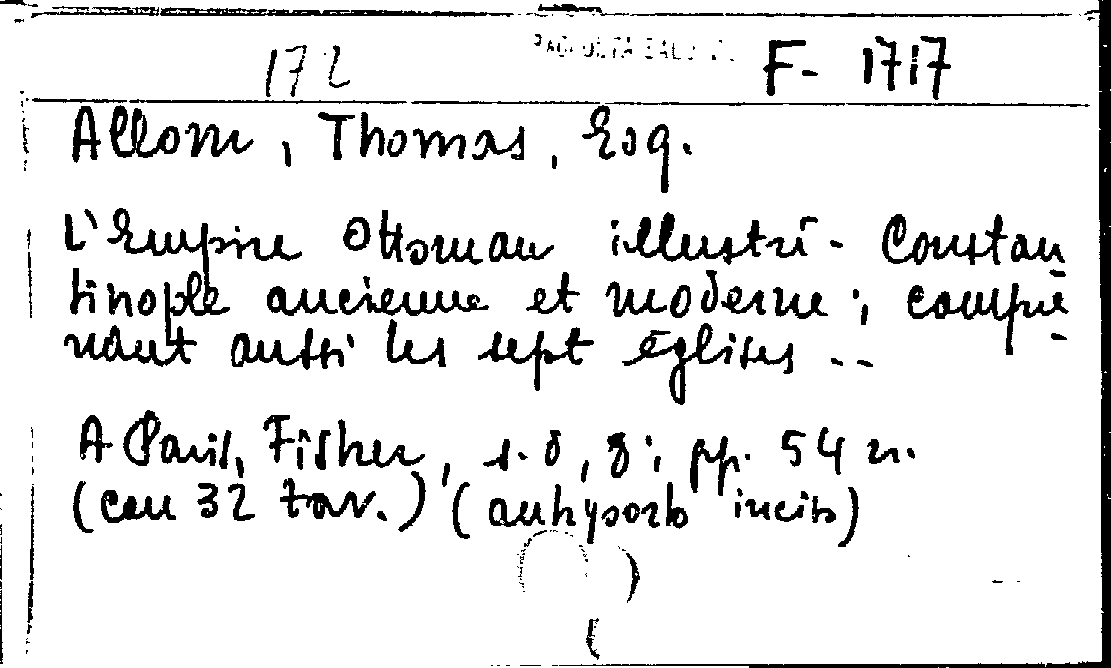 172 RACCOLTA F- 1717
Allom, Thomas, Esq.
L'Empire Ottoman illustré - Constan
tinople ancienne et moderne; compre-
nant aussi les sept églises ..
A Paris, Fisher, s.d, 8°; pp. 54 n.
(con 32 tav.) (antiporto inciso)